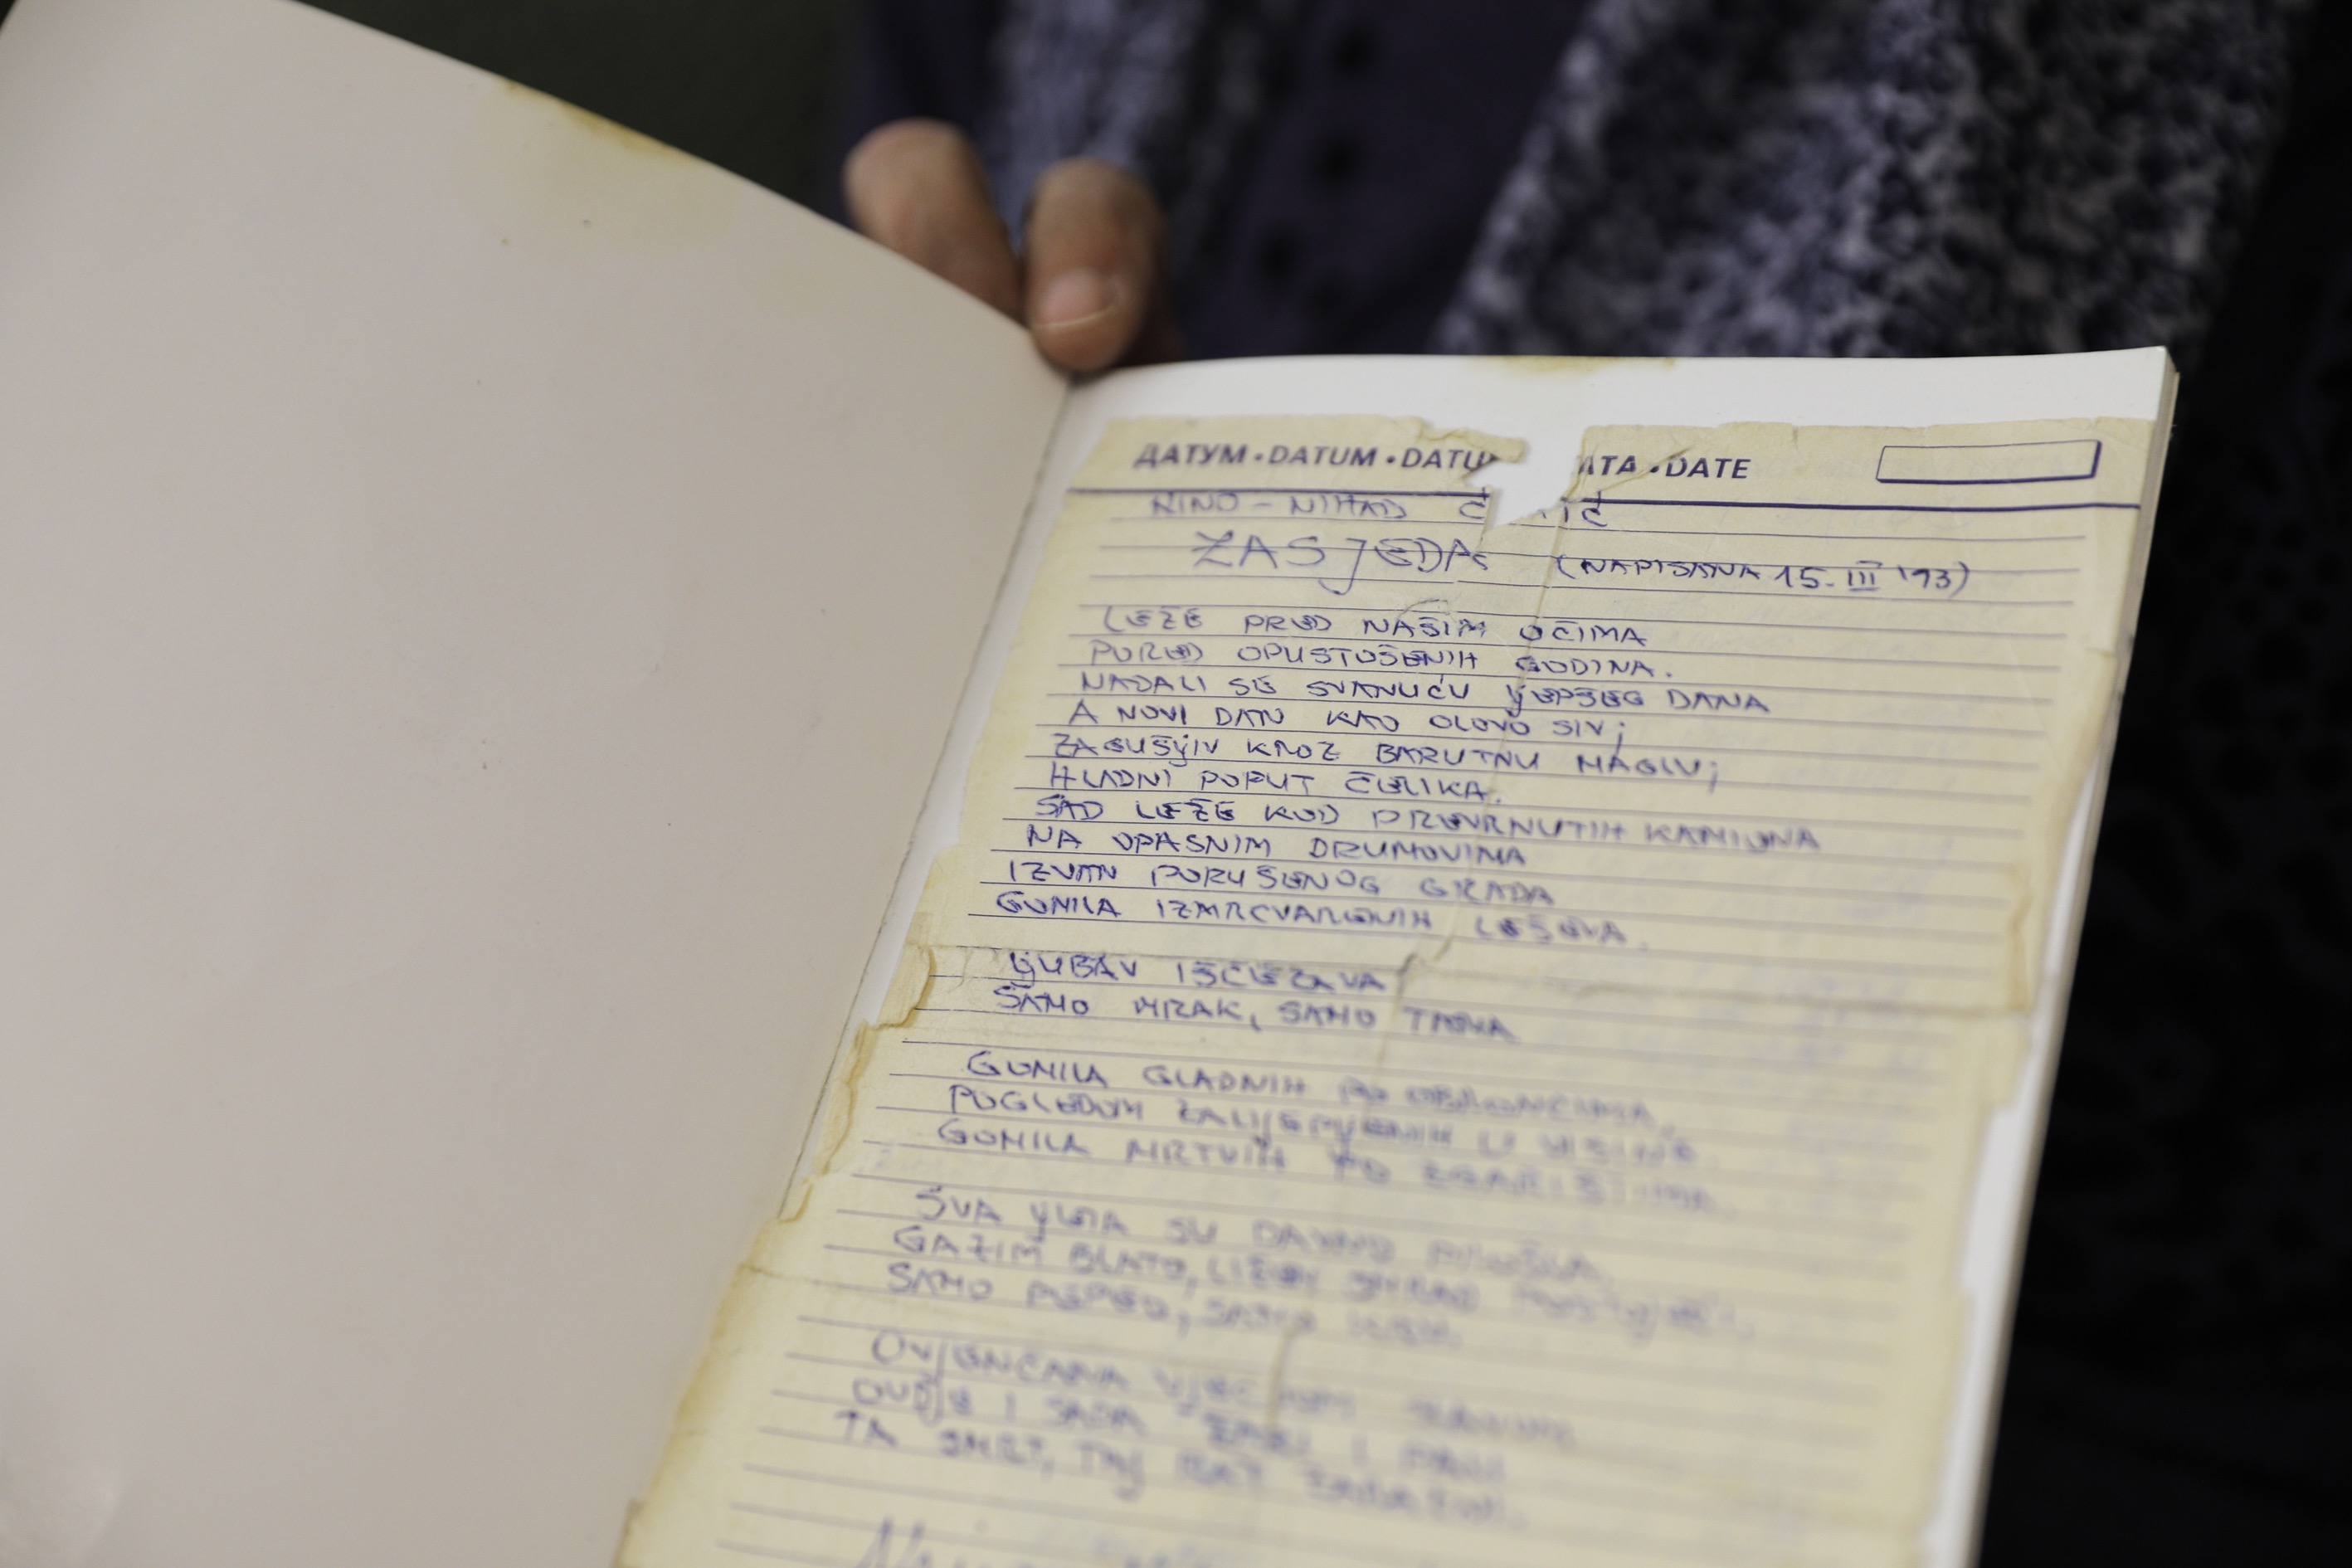 ДАТУМ • DATUM • DATU ATA • DATE
NINO - NIHAD
ZASJEDA (NAPISANA 15. III '93)
LEŽE PRED NAŠIM OČIMA
PORED OPUSTOŠENIH GODINA.
NADALI SE SVANUĆU LJEPŠEG DANA
A NOVI DAN KAO OLOVO SIV;
ZAGUŠLJIV KROZ BARUTNU MAGLU;
HLADNI POPUT ČELIKA.
SAD LEŽE KOD PREVRNUTIH KAMIONA
NA OPASNIM DRUMOVIMA
IZVAN PORUŠENOG GRADA
GOMILA IZMRCVARENIH LEŠEVA.
LJUBAV IŠČEZAVA
SAMO MRAK, SAMO TAMA
GOMILA GLADNIH PO
POGLEDOM ZALIJEPLJENIH U VISINE
GOMILA MRTVIH PO ZGARIŠTIMA.
SVA LJETA SU DAVNO PROŠLA.
GAZIM BLATO,
SAMO PEPEO, SAMO
OVJENČANA
OVDJE I SADA I
TA SMRT, TAJ RAT